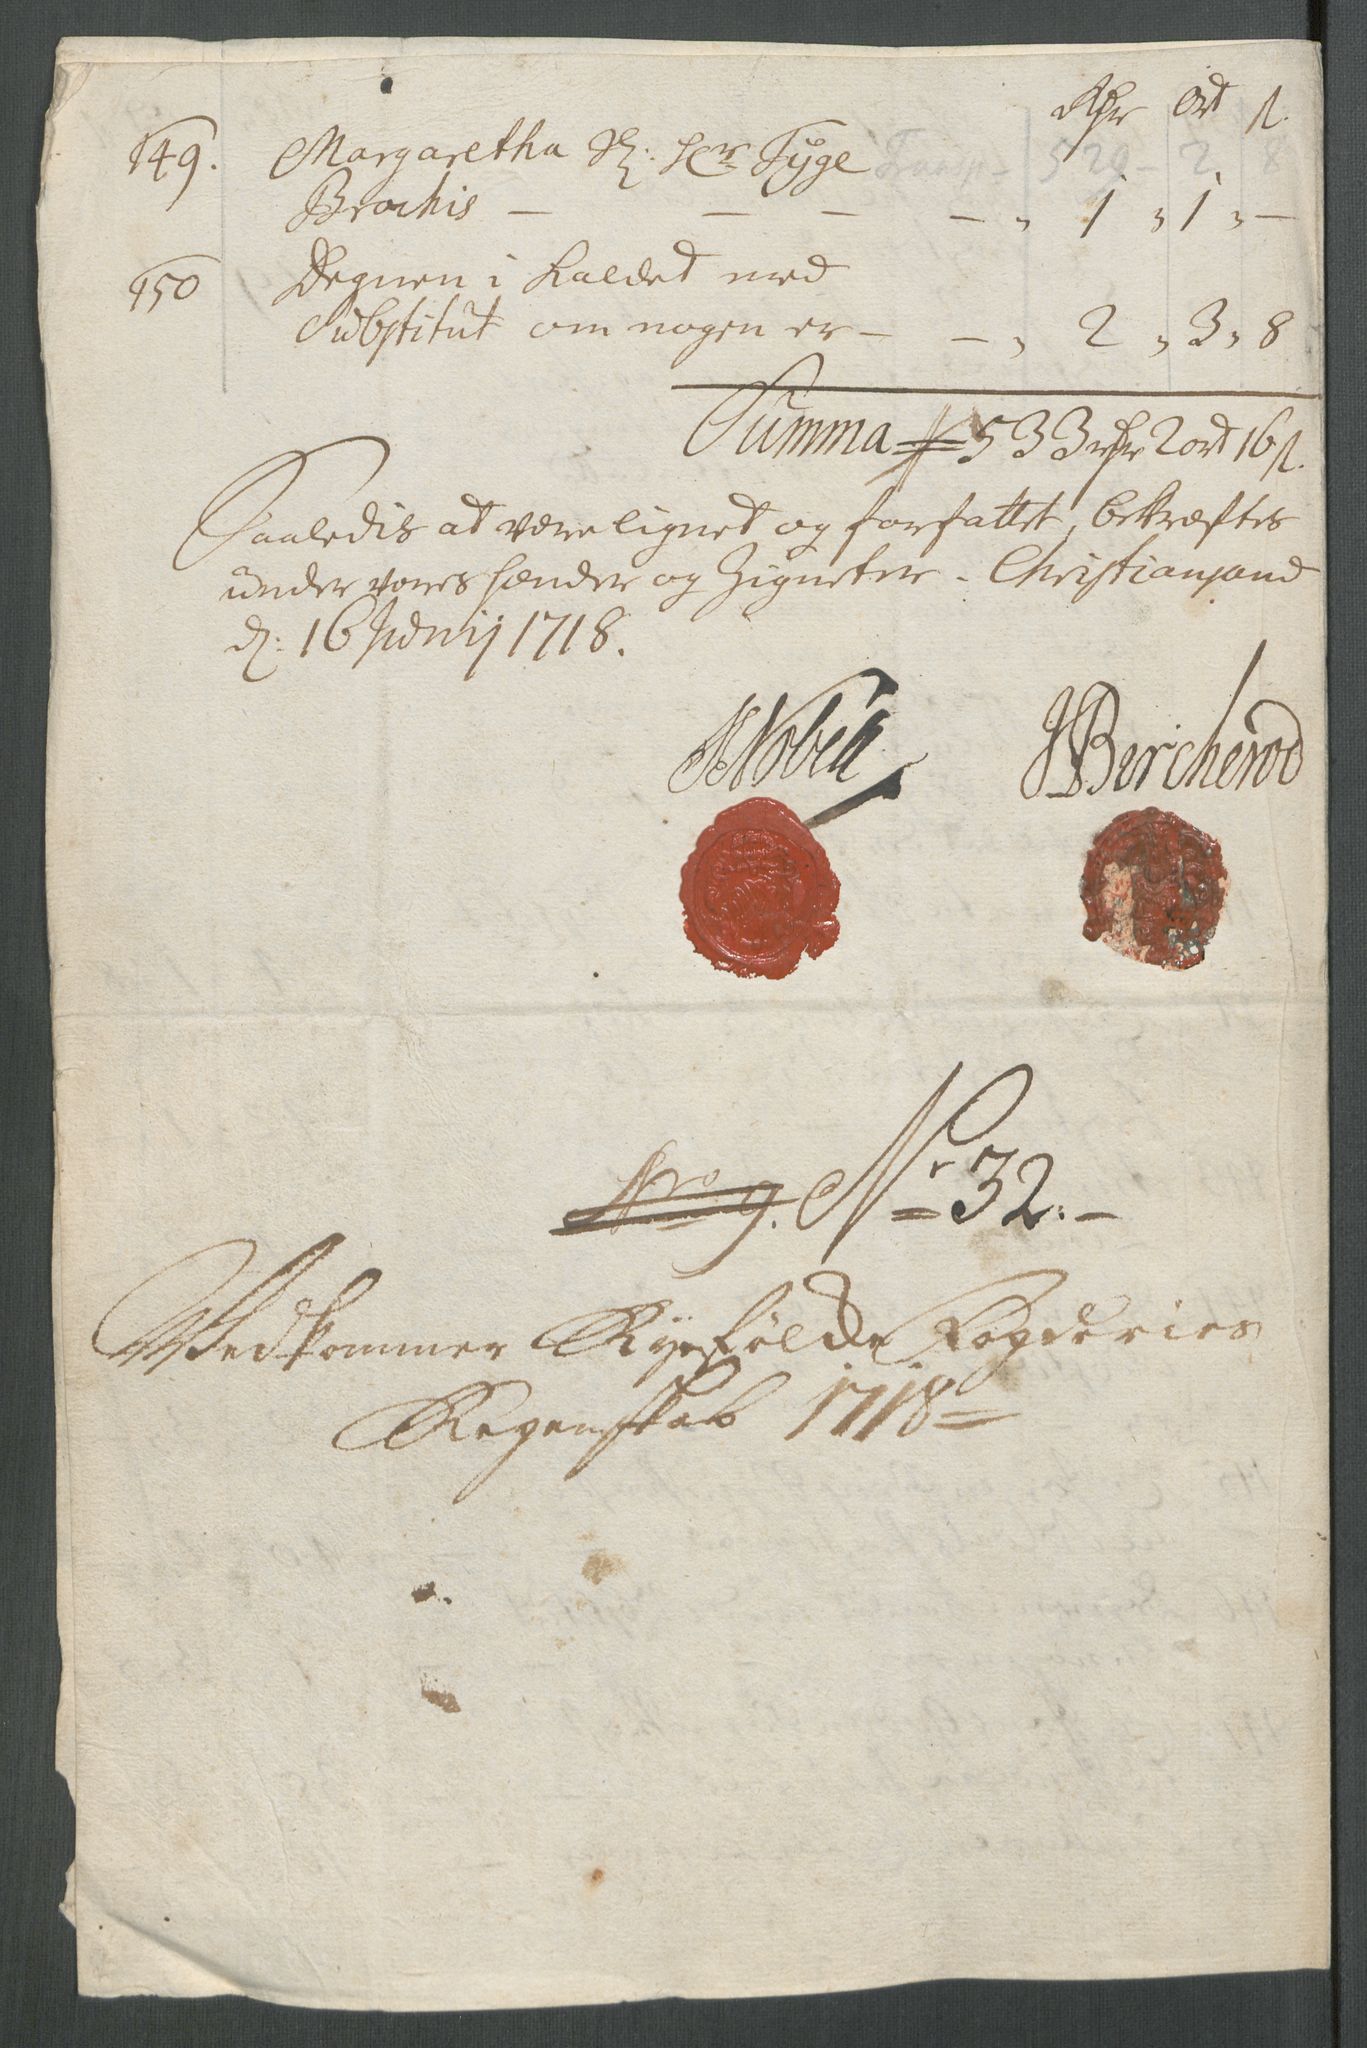 Rdr Ort s.
Transp. 529 - 2 8
149. Margaretha Sl: Hr Tyge
Brochis — — — — „ 1 „ 1 „ —
150 Degnen i Kaldet med
Substitut om nogen er — — „ 2 „ 3 „ 8
Summa 533 rdr 2 ort 16 s.
Saaledis at være lignet og forfattet, bekræftes
under vores hænder og Zigneter. Christiansand
d: 16 Junij 1718.
Nobell JBercherod
No 9. Nr 32.
Vedkommer Ryefölcke Fogderies
Regenskab 1718